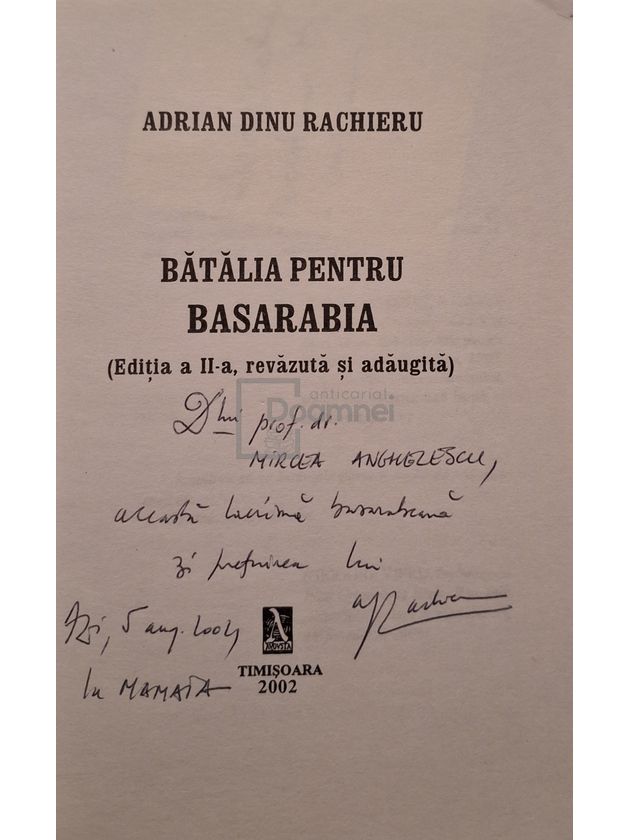 ADRIAN DINU RACHIERU
BĂTĂLIA PENTRU
BASARABIA
(Ediția a II-a, revăzută și adăugită)
anticariat
Dogmnei
Dlui prof. dr.
MIRCEA ANGHELESCU,
această lacrimă basarabeană
și prețuirea lui
Azi, 5 aug. 2004
la MAMAIA
AUGUSTA
TIMIȘOARA
2002